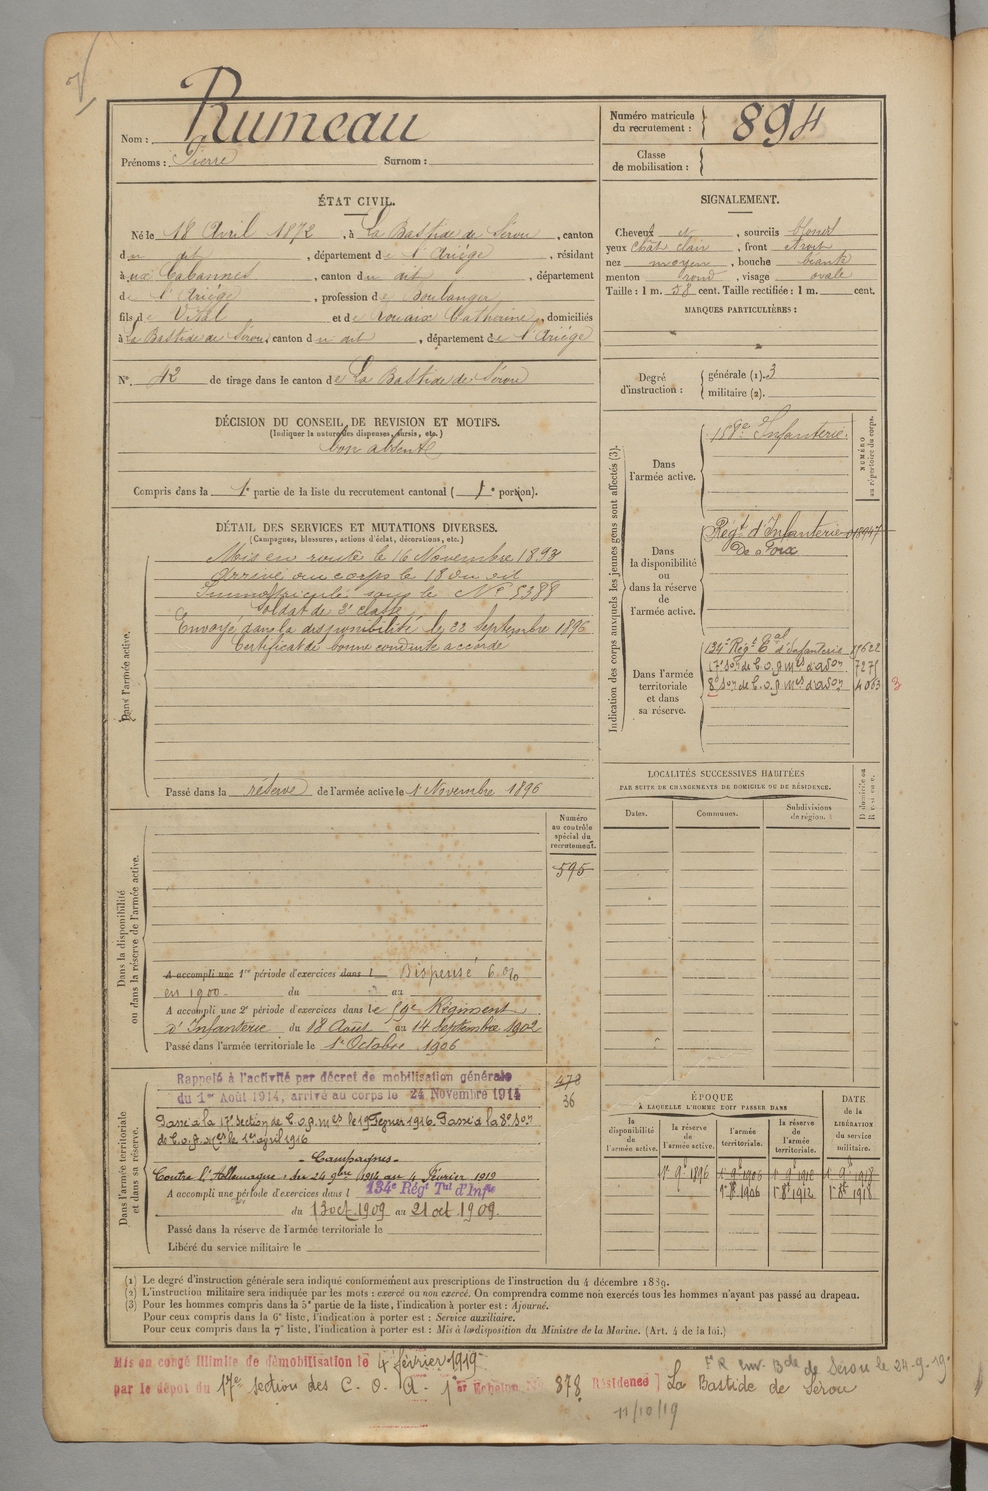 Nom : Rumeau
Prénoms : Pierre Surnom :
Numéro matricule du recrutement : 894
Classe de mobilisation :
ÉTAT CIVIL.
Né le 18 Avril 1872, à La Bastide de Sérou, canton
du dit, département de l'Ariège, résidant
à aux Cabannes, canton du dit, département
de l'Ariège, profession de Boulanger
fils de Vital et de Rouaix Catherine, domiciliés
à La Bastide de Sérou, canton du dit, département de l'Ariège
N° 42 de tirage dans le canton de La Bastide de Sérou
DÉCISION DU CONSEIL DE REVISION ET MOTIFS.
(Indiquer la nature des dispenses, sursis, etc.)
bon absent
Compris dans la 1e partie de la liste du recrutement cantonal ( 1e portion).
DÉTAIL DES SERVICES ET MUTATIONS DIVERSES.
(Campagnes, blessures, actions d'éclat, décorations, etc.)
Dans l'armée active.
Mis en route le 16 Novembre 1893
Arrivé au corps le 18 du dit
Immatriculé sous le N° 5388
Soldat de 2e classe
Envoyé dans la disponibilité le 22 Septembre 1896
Certificat de bonne conduite accordé
Passé dans la réserve de l'armée active le 1 Novembre 1896
Dans la disponibilité
ou dans la réserve de l'armée active.
Numéro
au contrôle
spécial du
recrutement.
595
A accompli une 1re période d'exercices dans l Dispensé 6 0/0
en 1900 du au
A accompli une 2e période d'exercices dans le 59e Régiment
d'Infanterie du 18 Août au 14 Septembre 1902
Passé dans l'armée territoriale le 1er Octobre 1906
Dans l'armée territoriale
et dans sa réserve.
Rappelé à l'activité par décret de mobilisation générale
du 1er Août 1914, arrivé au corps le 24 Novembre 1914
478
36
Passé à la 17e Section de C.O.A. Mres le 19 Février 1916. Passé à la 8e Son
de C.o.a. Mres le 1er avril 1916
- Campagnes -
Contre l'Allemagne, du 24 9bre 1914 au 4 Février 1919
A accompli une période d'exercices dans l 134e Régt Tal d'Infie
du 13 oct. 1909 au 21 oct. 1909.
Passé dans la réserve de l'armée territoriale le
Libéré du service militaire le
SIGNALEMENT.
Cheveux et, sourcils blonds
yeux chât. clair, front étroit
nez moyen, bouche béante
menton rond, visage ovale
Taille : 1 m. 58 cent. Taille rectifiée : 1 m. cent.
MARQUES PARTICULIÈRES :
Degré d'instruction : générale (1). 3
militaire (2).
Indication des corps auxquels les jeunes gens sont affectés (3).
NUMÉRO
au répertoire du corps.
Dans
l'armée active.
Infanterie.
Dans
la disponibilité
ou
dans la réserve
de
l'armée active.
Régt d'Infanterie 018947
De Foix
Dans l'armée
territoriale
et dans
sa réserve.
134e Régt Tal d'Infanterie
17e Son de C.o.a. Mres d'adon 7275
8e Son de C.o.a. Mres d'adon 4063 3
LOCALITÉS SUCCESSIVES HABITÉES
PAR SUITE DE CHANGEMENTS DE DOMICILE OU DE RÉSIDENCE.
Dates. Communes. Subdivisions de région. D domicile ou R résidence.
ÉPOQUE
À LAQUELLE L'HOMME DOIT PASSER DANS
DATE
de la
LIBÉRATION
du service
militaire.
la disponibilité de l'armée active. la réserve de l'armée active. l'armée territoriale. la réserve de l'armée territoriale.
1er 9e 1896 1er 9e 1906 1er 9e 1912 1er 9e 1918
1er 8e 1906 1er 8e 1912 1er 8e 1918
(1) Le degré d'instruction générale sera indiqué conformément aux prescriptions de l'instruction du 4 décembre 1889.
(2) L'instruction militaire sera indiquée par les mots : exercé ou non exercé. On comprendra comme non exercés tous les hommes n'ayant pas passé au drapeau.
(3) Pour les hommes compris dans la 5e partie de la liste, l'indication à porter est : Ajourné.
Pour ceux compris dans la 6e liste, l'indication à porter est : Service auxiliaire.
Pour ceux compris dans la 7e liste, l'indication à porter est : Mis à la disposition du Ministre de la Marine. (Art. 4 de la loi.)
Mis en congé illimité de démobilisation le 4 février 1919
par le dépôt du 17e section des C. O. A. 1er Echelon N° 878 Résidence La Bastide de Sérou
F R env. Bde de Sérou le 24-9-19
11/10/19